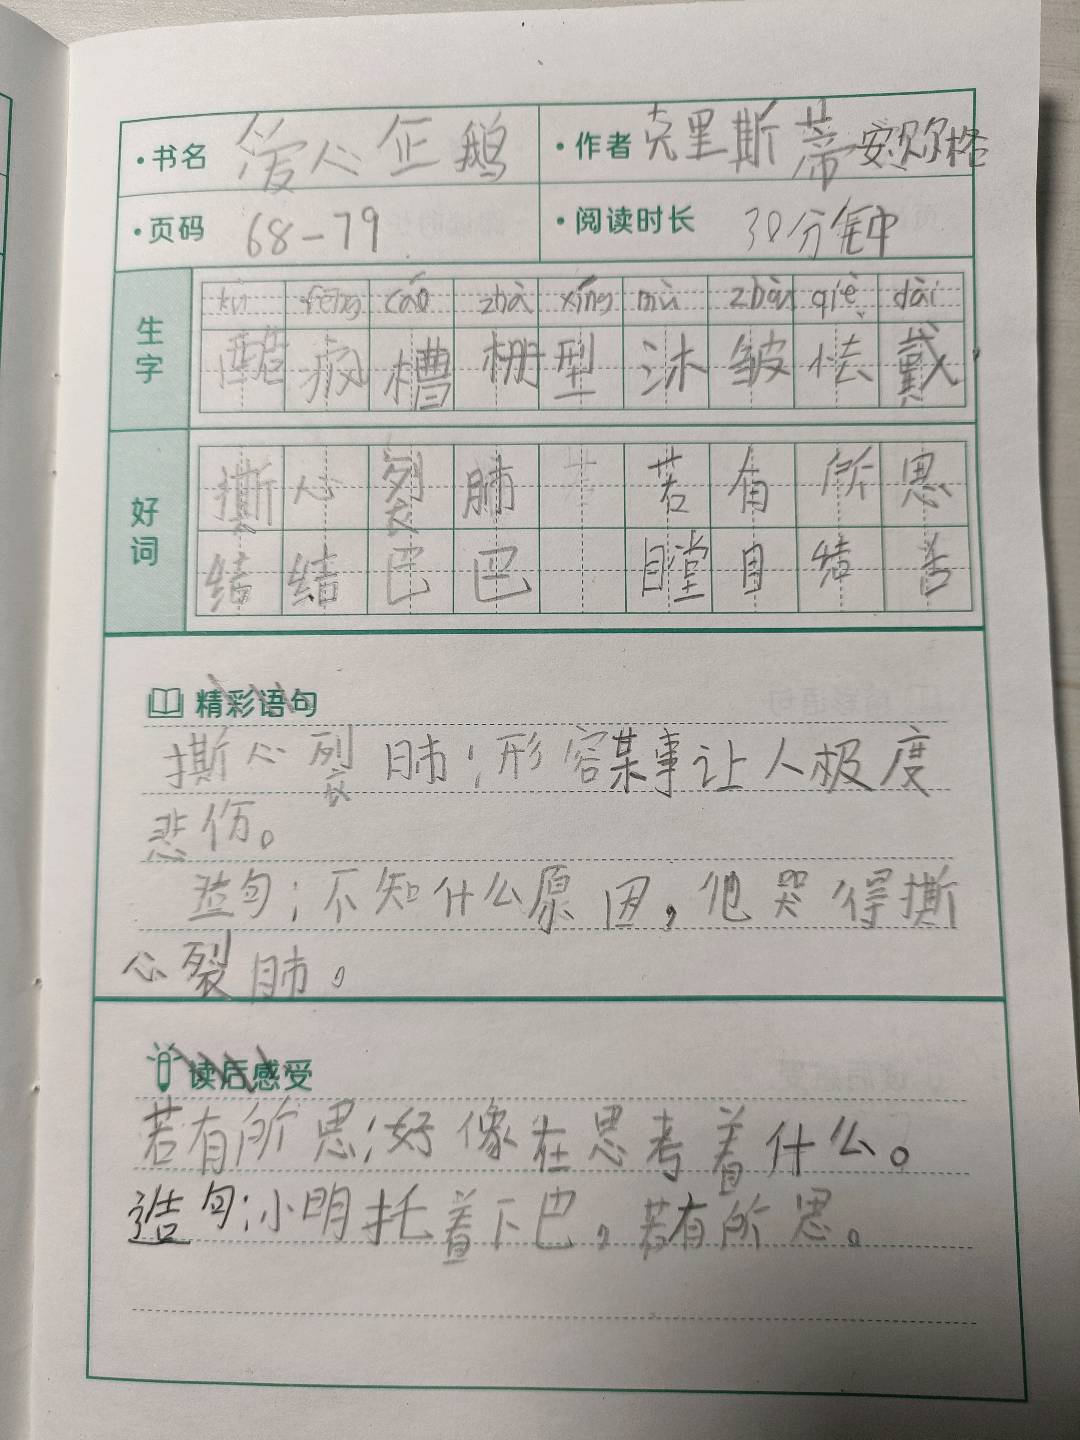 ·书名 爱心企鹅 ·作者 克里斯蒂安贝尔格
·页码 68-79 ·阅读时长 30分钟
kù fēng cáo zhà xíng mù zhòu qiè dài
生字 酷 疯 槽 栅 型 沐 皱 怯 戴
好词 撕心裂肺 若有所思
结结巴巴 瞠目结舌
精彩语句
撕心裂肺:形容某事让人极度
悲伤。
造句:不知什么原因,他哭得撕
心裂肺。
读后感受
若有所思:好像在思考着什么。
造句:小明托着下巴,若有所思。